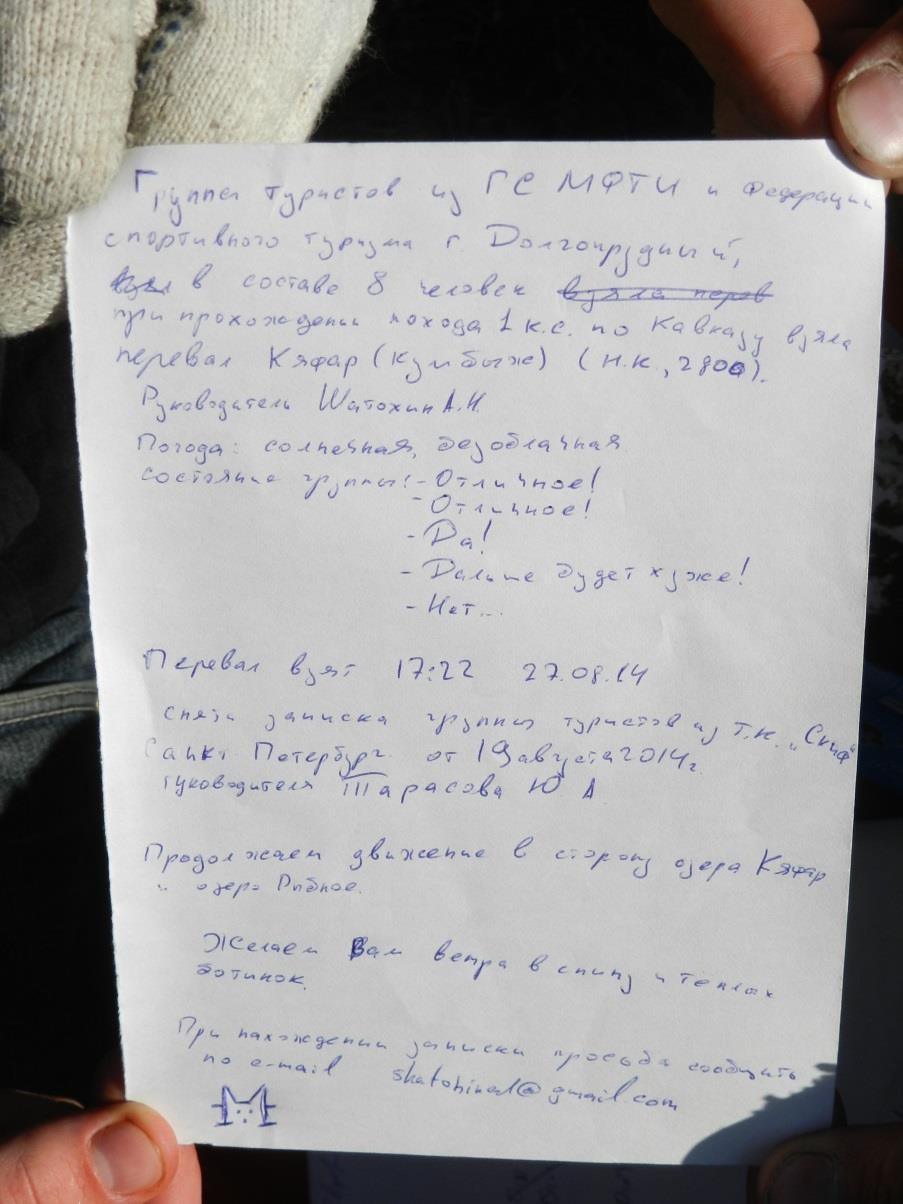 Группа туристов из ГС МФТИ и Федерации
спортивного туризма г. Долгопрудный,
в составе 8 человек взяла перев
при прохождении похода 1 к.с. по Кавказу взяла
перевал Кяфар (Кумбыж) (Н.К., 2800).
Руководитель Шатохин А.Н.
Погода: солнечная, безоблачная
состояние группы: - Отличное!
- Отличное!
- Да!
- Дальше будет хуже!
- Нет...
Перевал взят 17:22 27.08.14
снята записка группы туристов из т.к. "Скиф"
Санкт Петербург от 19 августа 2014г.
руководителя Тарасова Ю А
Продолжаем движение в сторону озера Кяфар
и озера Рыбное.
Желаем Вам ветра в спину и теплых
ботинок.
При нахождении записки просьба сообщить
по e-mail shatohinal@gmail.com